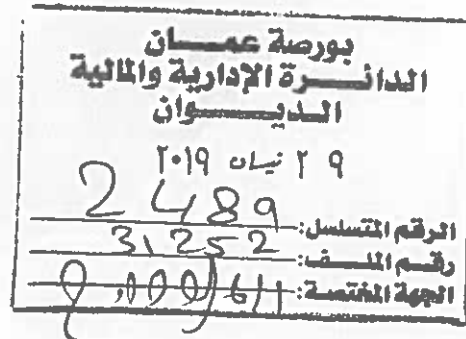 بورصة عمـــان
الدائـــرة الإدارية والمالية
الـديـــــوان
٢٩ نيسان ٢٠١٩
الرقم المتسلسل: 2489
رقـــم الملـــف: 31252
الجهة المختصة: